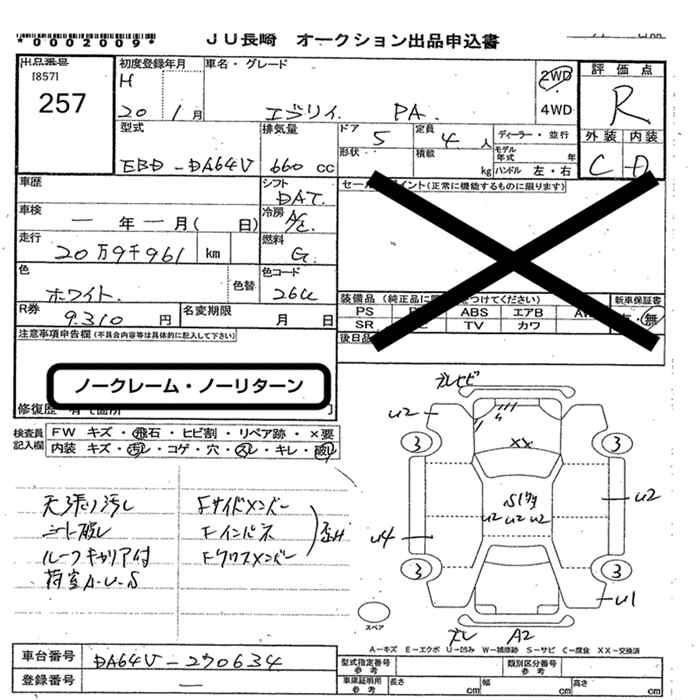 *0002009* JU長崎 オークション出品申込書
出品番号 [857] 257
初度登録年月 H 20 1 月
車名・グレード エブリイ PA.
2WD 4WD
評価点 R
外装 C 内装 D
型式 EBD-DA64V
排気量 660 cc
ドア 5
定員 4 人
ディーラー・並行
形状
積載 kg
モデル年式 年
ハンドル 左・右
車歴
シフト DAT.
セールスポイント(正常に機能するものに限ります)
車検 一 年 一 月( 日)
冷房 A/C
走行 20万9千961 km
燃料 G.
色 ホワイト
色替
色コード 26U
装備品(純正品に をつけてください)
新車保証書
PS ABS エアB AW 有・無
SR TV カワ
後日品
R券 9.310 円
名変期限 月 日
注意事項申告欄(不具合内容等は具体的に記入して下さい)
ノークレーム・ノーリターン
修復歴 有
検査員記入欄
FW キズ・飛石・ヒビ割・リペア跡・×要
内装 キズ・汚レ・コゲ・穴・スレ・キレ・破レ
天張り汚レ
シート破レ
ルーフキャリア付
荷室A・U・S
Fサイドメンバー
Fインパネ
Fクロスメンバー
歪み
ズレヒビ
U2
3 3
XX
U2
U2 U2 U2
U4
3 3
U1
スペア
ズレ A2
A-キズ E-エクボ U-凹み W-補修跡 S-サビ C-腐食 XX-交換済
車台番号 DA64V-270634
型式指定番号 参考
類別区分番号 参考
登録番号 一
車庫証明用 参考
長さ cm 幅 cm 高さ cm